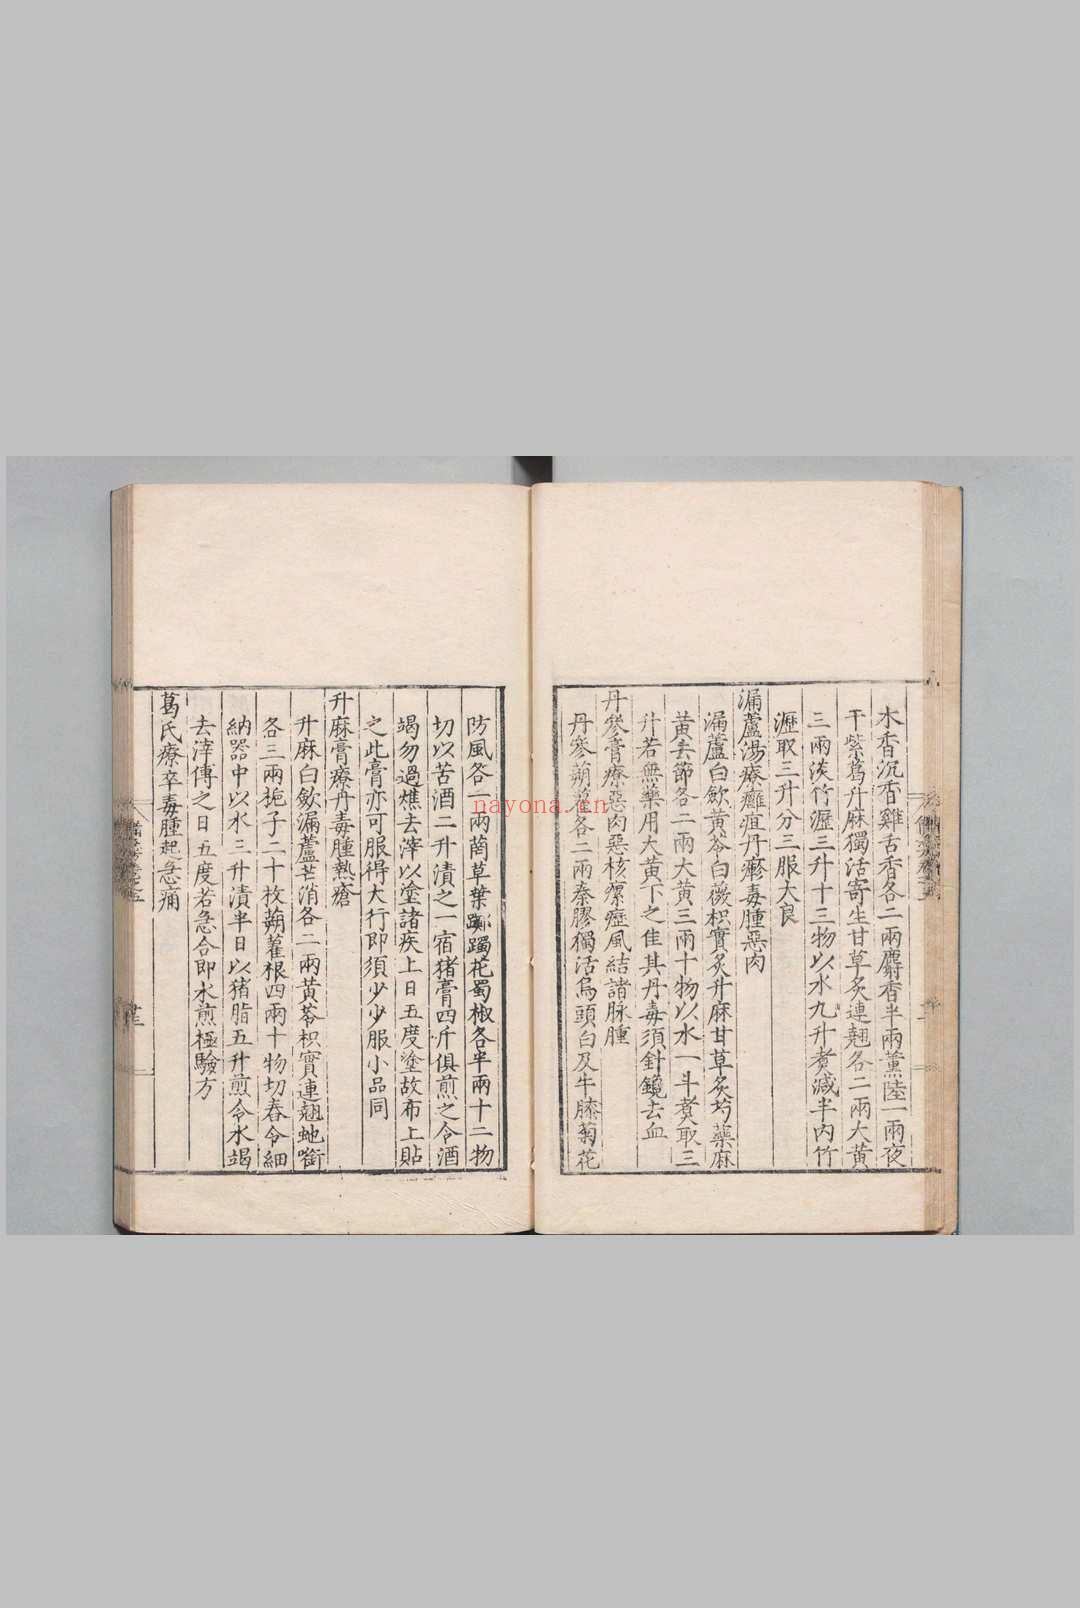 木香沉香雞舌香各二兩麝香半兩薰陸一兩夜
干紫葛升麻獨活寄生甘草炙連翹各二兩大黃
三兩淡竹瀝三升十三物以水九升煮減半內竹
瀝取三升分三服大良
漏蘆湯療癰疽丹瘮毒腫惡肉
漏蘆白歛黃芩白薇枳實炙升麻甘草炙芍藥麻
黃去節各二兩大黃三兩十物以水一斗煑取三
升若無藥用大黃下之佳其丹毒須針鑱去血
丹參膏療惡肉惡核瘰癧風結諸脉腫
丹參蒴藋各二兩秦膠獨活烏頭白及牛膝菊花
防風各一兩䓖草葉躑躅花蜀椒各半兩十二物
切以苦酒二升漬之一宿猪膏四斤俱煎之令酒
竭勿過燋去滓以塗諸疾上日五度塗故布上貼
之此膏亦可服得大行即須少少服小品同
升麻膏療丹毒腫熱瘡
升麻白歛漏蘆芒消各二兩黃芩枳實連翹虵銜
各三兩梔子二十枚蒴藋根四兩十物切舂令細
納器中以水三升漬半日以猪脂五升煎令水竭
去滓傅之日五度若急合即水煎極驗方
葛氏療卒毒腫起急痛
nayona.cn